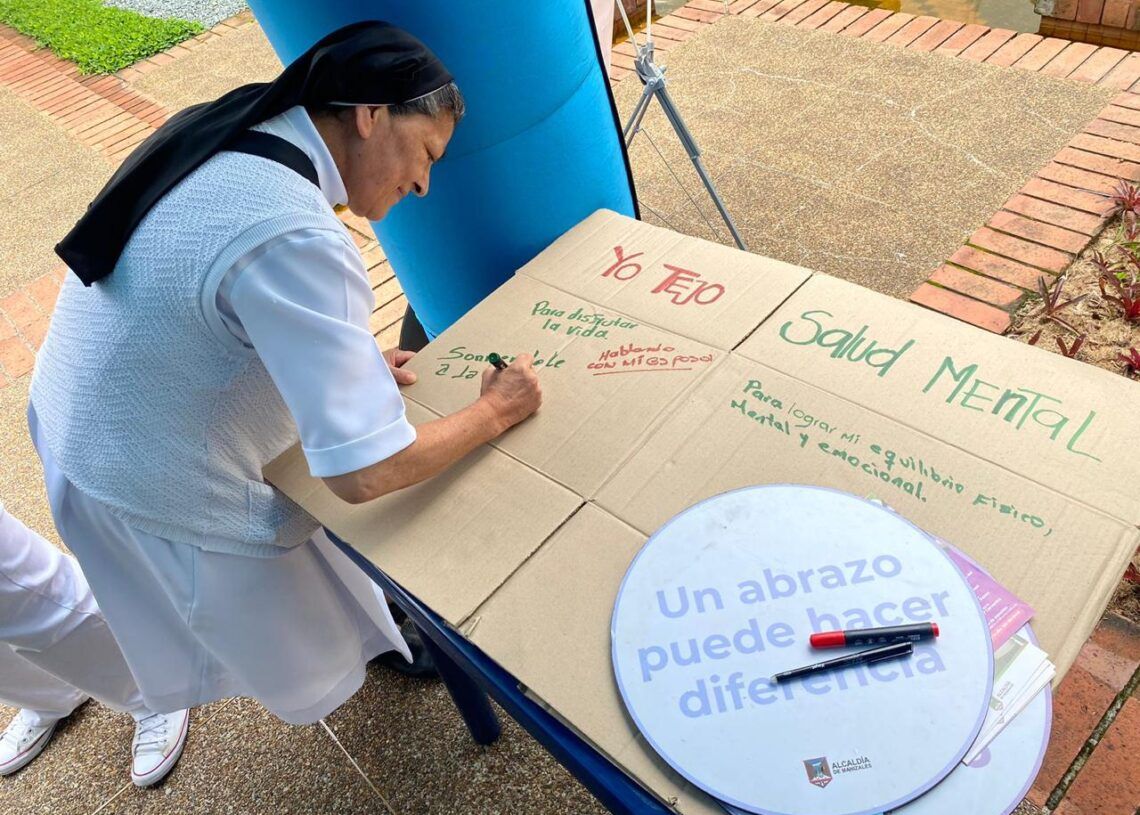 Yo TEJO
Salud MenTal
Para disfrutar
la vida.
Hablando
con Mi Esposa
a la
Para lograr Mi equilibrio Fisico,
Mental y emocional.
Un abrazo
puede hacer
diferencia
ALCALDÍA
DE MANIZALES